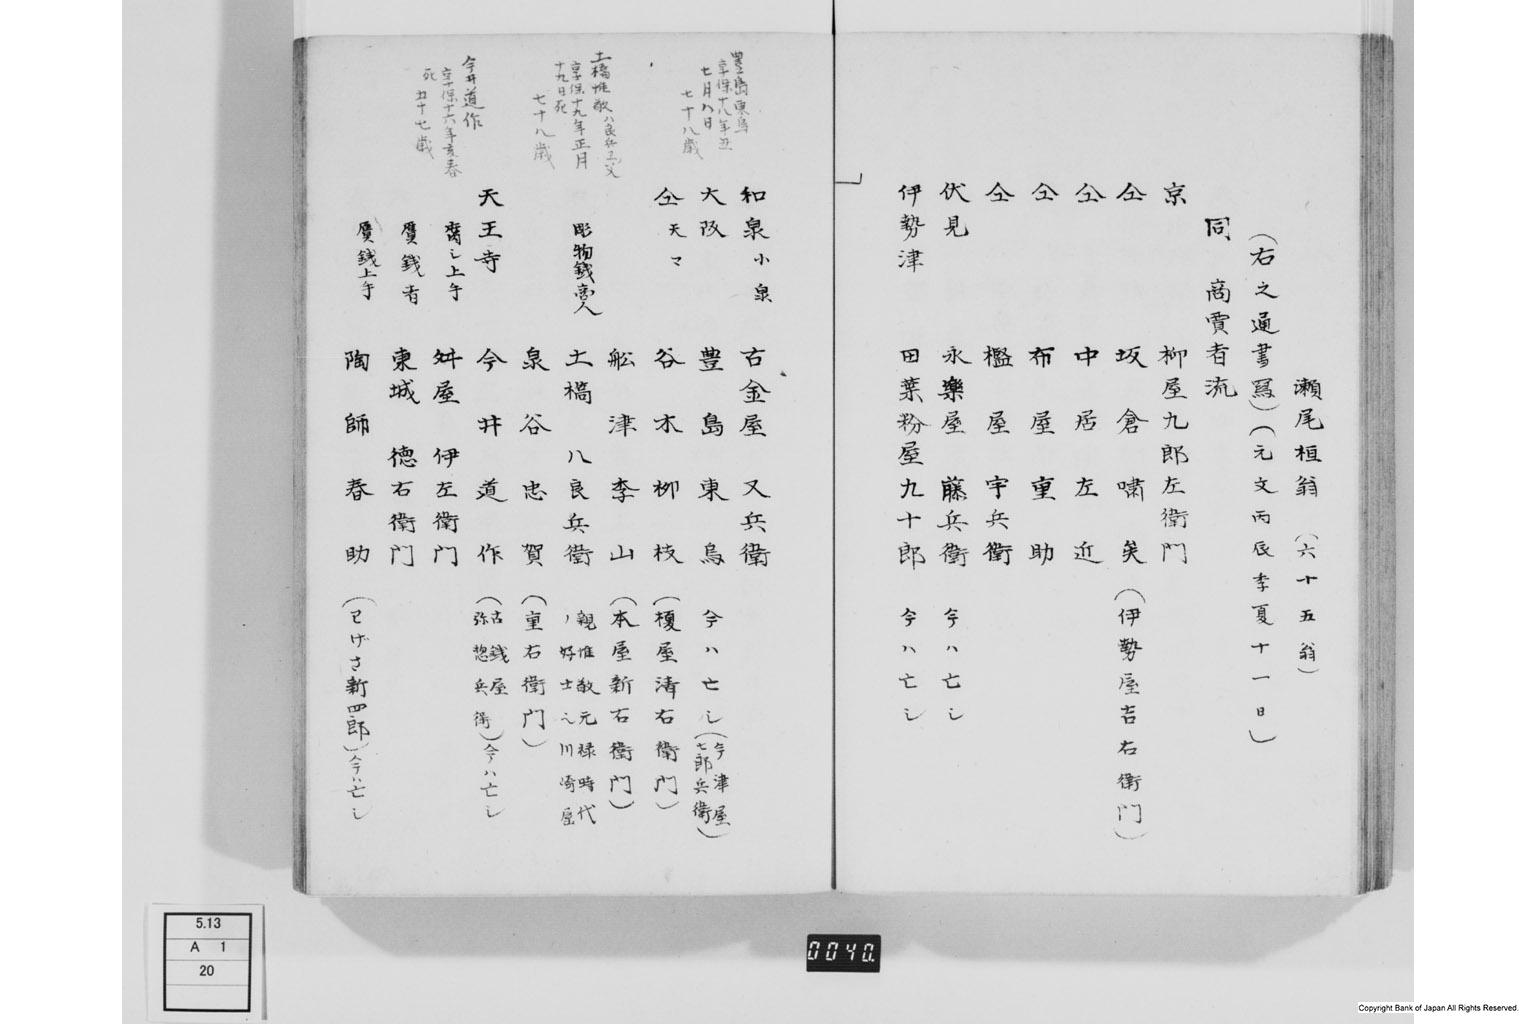 瀬尾桓翁 (六十五翁)
(右之通書写)(元文丙辰季夏十一日)
同 商賣者流
京 柳屋九郎左衛門
仝 坂倉嘯矣(伊勢屋吉右衛門)
仝 中居左近
仝 布屋重助
仝 檻屋宇兵衛
伏見 永樂屋藤兵衛 今ハ亡シ
伊勢津 田葉粉屋九十郎 今ハ亡シ
豊島東烏
享保十八年丑
七月八日
七十八歳
土橋惟敬ハ良兵衛父
享保十九年正月
十九日死
七十八歳
今井道作
享保十六年亥春
死 五十七歳
和泉小泉 古金屋又兵衛
大阪 豊島東烏 今ハ亡シ(今津屋七郎兵衛)
仝天マ 谷木柳枝(榎屋清右衛門)
舩津李山(本屋新右衛門)
彫物銭商人 土橋八良兵衛 親惟敬元禄時代ノ好士也川崎屋
泉谷忠賀(重右衛門)
天王寺 今井道作(古銭屋弥惣兵衛)今ハ亡シ
上手 舛屋伊左衛門
贋銭者 東城徳右衛門
贋銭上手 陶師春助(ワげさ新四郎)今ハ亡シ
5.13
A 1
20
0040
Copyright Bank of Japan All Rights Reserved.